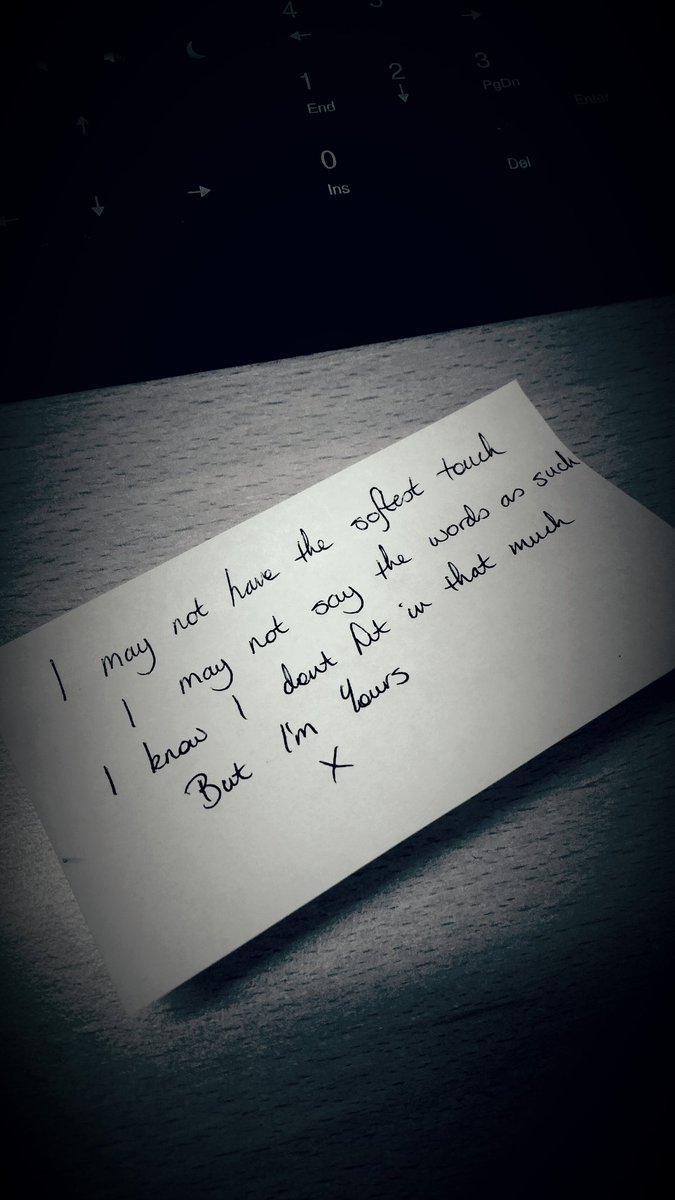 4
1
End
2
3
PgDn
Enter
0
Ins
Del
I may not have the softest touch
I may not say the words as such
I know I dont fit in that much
But I'm Yours
X